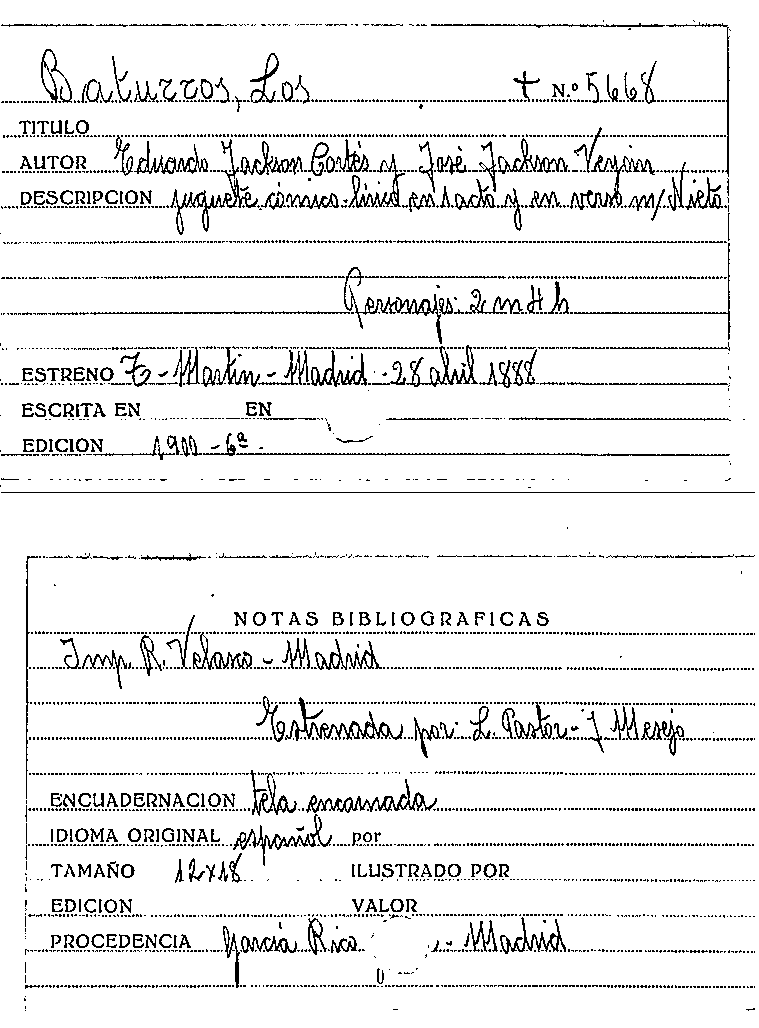 Baturros, Los + N.º 5668
TITULO
AUTOR Eduardo Jackson Cortés y José Jackson Veyán
DESCRIPCION juguete cómico-lírico en 1 acto y en verso m/ Nieto
Personajes: 2 m 4 h
ESTRENO T- Martin - Madrid - 28 abril 1888
ESCRITA EN EN
EDICION 1900 - 6ª.
NOTAS BIBLIOGRAFICAS
Imp. R. Velasco - Madrid
Estrenada por: L. Pastor - J Mesejo
ENCUADERNACION tela encarnada
IDIOMA ORIGINAL español por
TAMAÑO 12x18 ILUSTRADO POR
EDICION VALOR
PROCEDENCIA García Rico - Madrid